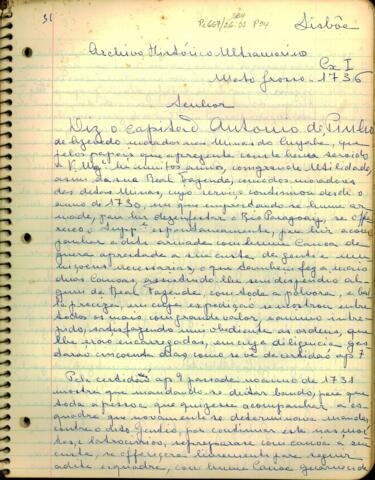 31
Lisbôa
Archivo Histórico Ultramarino
Cx I
Mato Grosso - 1736
Senhor
Diz o capitão Antonio de Pinho
de Azevedo morador nas Minas do Cuyaba, que
pelos papeis que apresenta consta haver servido
a V. Mag.e muitos annos, com grande utilidade,
assim da sua Real Fazenda, como dos moradores
das ditas Minas, cujo serviço continuou desde o
anno de 1730, em que emprehendendo-se huma ar-
mada, para hir dezinfestar o Rio Paraguay, se offe-
receo o Supp.e espontaneamente, para hir acom-
panhar a dita armada com huma Canoa de
guerra aprestada a sua custa de gente e mu-
niçoens necessarias, o que tambem fez a mais
duas canoas, assistindo lhe sem dispendio al-
gum da Real Fazenda, com toda a polvora, e bala
preciza, em cuja expedição se mostrou entre
todos os mais com grande valor, e animo intre-
pido, satisfazendo mui obediente as ordens, que
lhe erão encarregadas, em cuja diligencia gas-
tarão cincoenta dias, como se vê da certidão ap 7
Pela certidão ap 9 passada no anno de 1731
mostra que mandando-se deitar bando, para que
toda a pessoa que quizesse acompanhar a es-
quadra que novamente se determinava mandar
contra o dito Gentio, por continuar este nas mor-
tes, e latrocinios, se preparasse com canoa á sua
custa, se offereceo livremente para seguir
a dita esquadra, com huma Canoa guarnecida